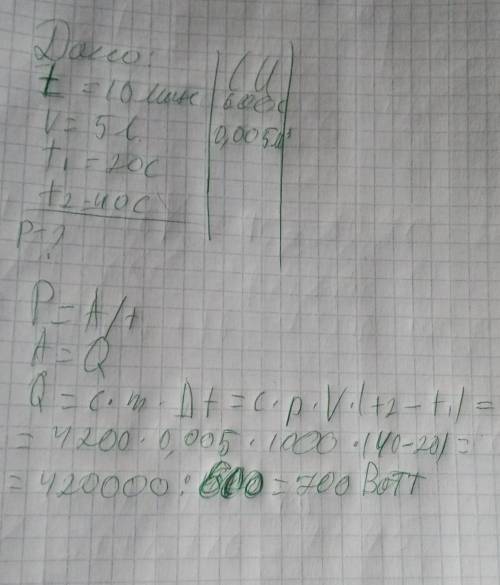 Дано:
СИ
t = 10 мин
600с
V = 5 л.
0,005м³
t1 - 20с
t2 - 40с
P - ?
P = A/t
A = Q
Q = c · m · Δt = c · p · V · (t2 - t1) =
= 4200 · 0,005 · 1000 · (40-20) =
= 420000 : 600 = 700 Ватт